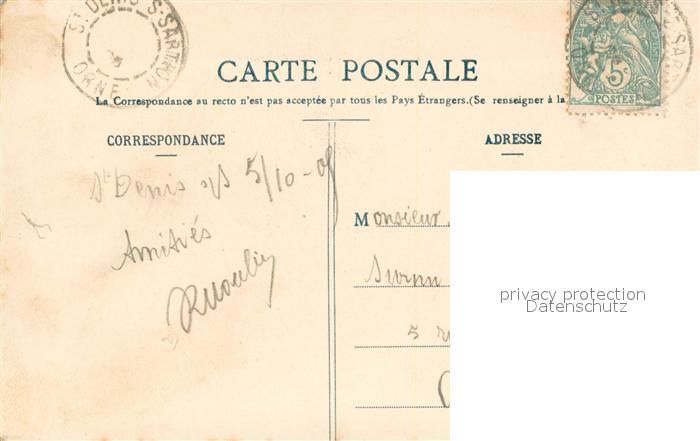 ST DENIS-S-SARTHON
ORNE
5c
POSTES
CARTE POSTALE
La Correspondance au recto n'est pas acceptée par tous les Pays Étrangers.(Se renseigner à la
CORRESPONDANCE
ADRESSE
St Denis s/S 5/10-05
Amitiés
Monsieur
5
privacy protection
Datenschutz